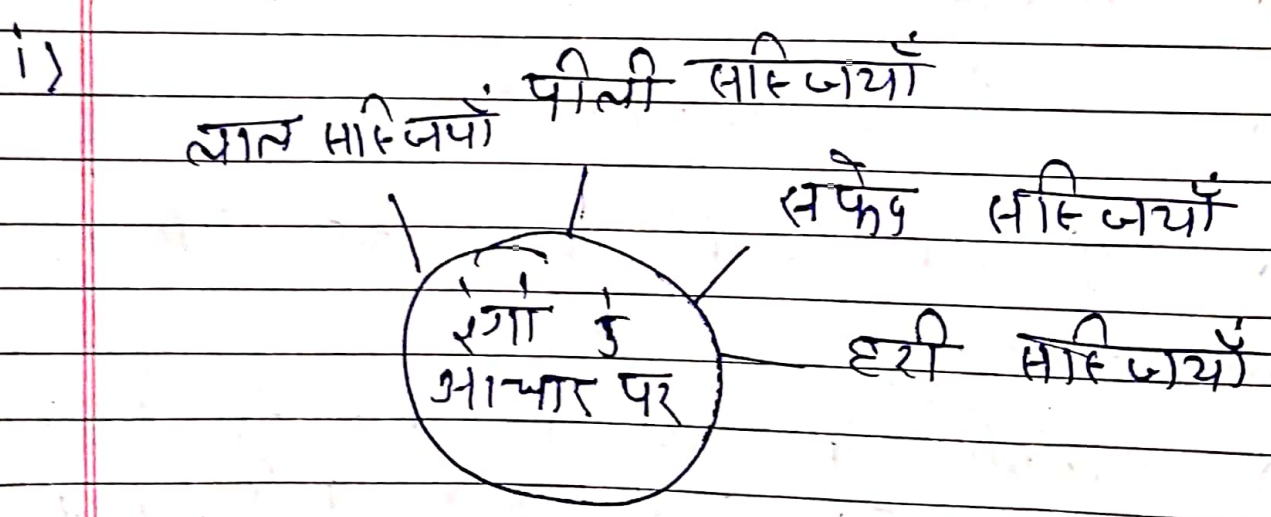 i)
लाल सब्जियाँ
पीली सब्जियाँ
सफेद सब्जियाँ
हरी सब्जियाँ
रंगों के
आधार पर